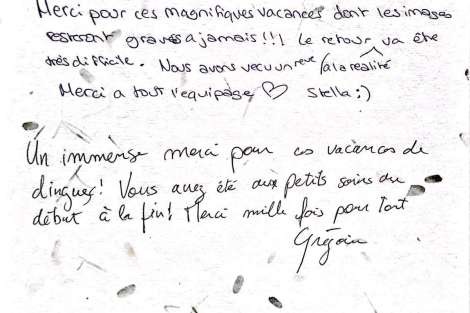 Merci pour ces magnifiques vacances dont les images
resteront gravés a jamais!!! Le retour va être
très difficile. Nous avons vecu un reve (a la realité
Merci a tout l'equipage ♡ Stella :)
Un immense merci pour ces vacances de
dingues! Vous avez été aux petits soins du
début à la fin! Merci mille fois pour tout
Grégoire